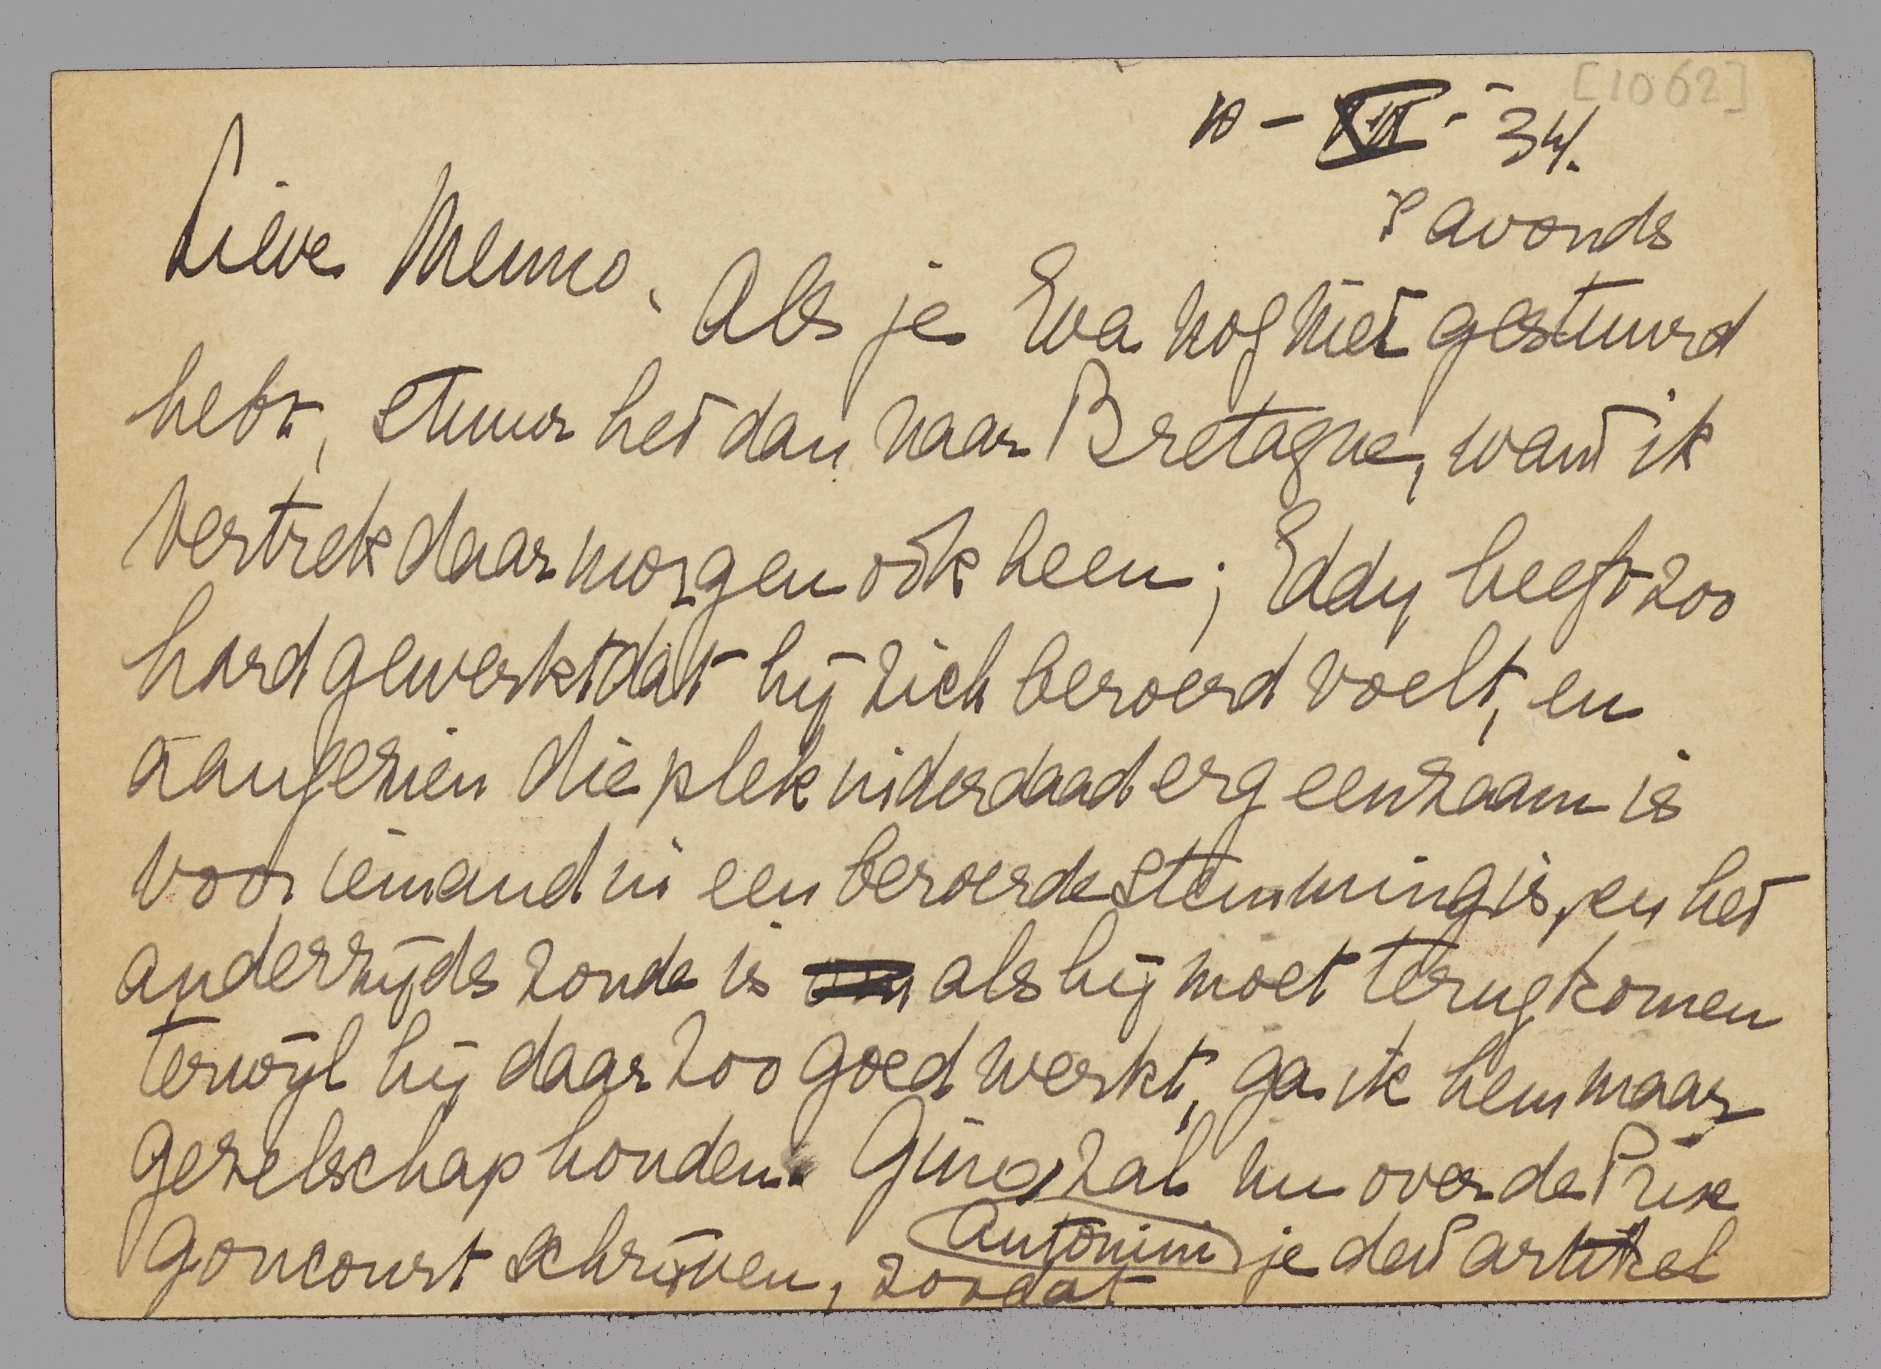 [1062]
10 - XII - 34.
's avonds
Lieve Menno, Als je Eva nog niet gestuurd
hebt, stuur het dan naar Bretagne, want ik
vertrek daar morgen ook heen; Eddy heeft zoo
hard gewerkt dat hij zich beroerd voelt, en
aangezien die plek inderdaad erg eenzaam is
voor iemand in een beroerde stemming is, en het
anderzijds zonde is als hij moet terugkomen
terwijl hij daar zoo goed werkt, ga ik hem maar
gezelschap houden. Gino zal nu over de Prix
Antonini
Goncourt schrijven, zoodat je dat artikel